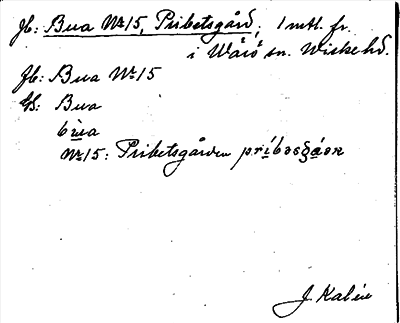 Jb: Bua No 15, Pribetsgård; 1 mtl. fr.
i Wårö sn. Wiske hd.
Jb: Bua No 15
Us: Bua
bùa
No 15: Pribetsgården príbəsgɑ́ən
J. Kalén